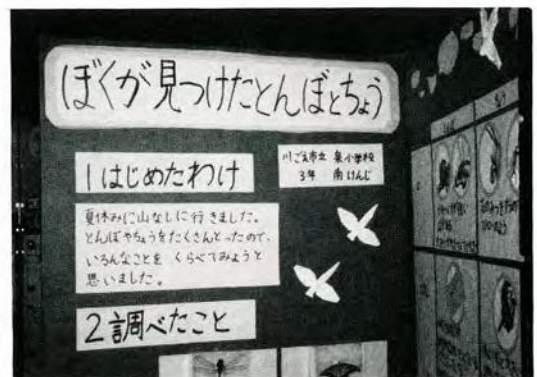 ぼくが見つけたとんぼとちょう
川ごえ市立 泉小学校
3年 南けんじ
1はじめたわけ
夏休みに山なしに行きました。
とんぼやちょうをたくさんとったので、
いろんなことを くらべてみようと
思いました。
2調べたこと